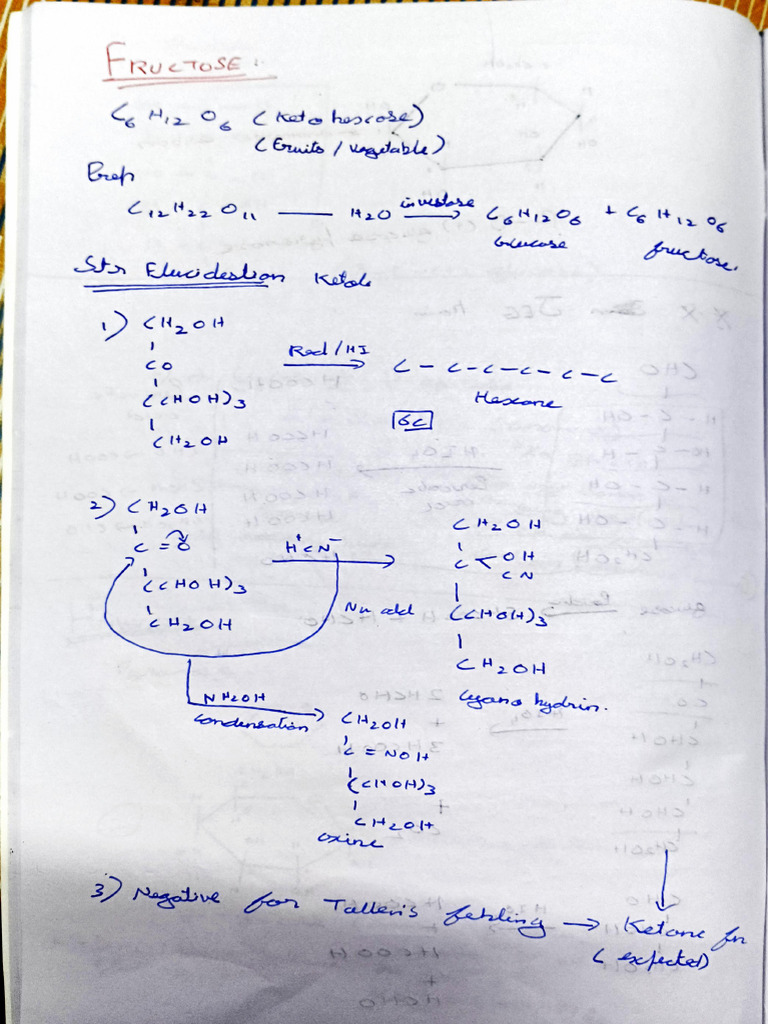 FRUCTOSE :
C6 H12 O6 (Keto hexose)
(Fruits / Vegetable)
Prep
C12H22O11 —— H2O invertase → C6H12O6 + C6H12O6
Glucose fructose.
Str Elucidation
1) CH2OH
CO
(CHOH)3
CH2OH
Red / HI →
C - C - C - C - C - C
Hexane
6C
2) CH2OH
C = O
(CHOH)3
CH2OH
H+ CN- →
Nu add
CH2OH
C < OH
CN
(CHOH)3
CH2OH
Cyano hydrin.
NH2OH
Condensation →
CH2OH
C = NOH
(CHOH)3
CH2OH
oxime
3) Negative for Tollen's fehling → Ketone fn
(expected)